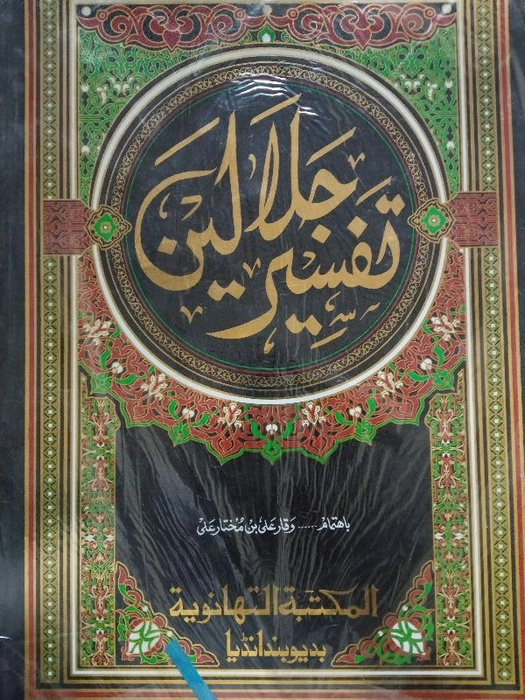 تفسیر جلالین
باهتمام ...... وقار علی بن مختار علی
المكتبة التهانوية
بديوبند انڈیا